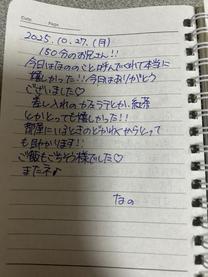 Date Page
2025.10.27.(月)
150分のお兄さん!!
今日はなののこと呼んでくれて本当に
嬉しかった!!今日はありがとう
ございました♡
差し入れのカヌラテとか、紅茶
とかとっても嬉しかった!!
部屋にいるときのどかわくからとって
も助かります!!
ご飯もごちそう様でした♡
またネ♪
なの